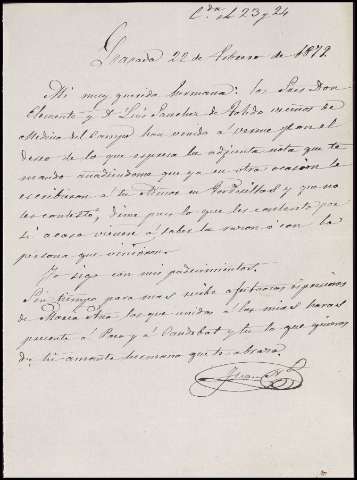 C.da el 23 y 24
Granada 22 de Febrero de 1872
Mi muy querida hermana: los Sres Don
Clemente y D Luis Sanchez de Toledo vecinos de
Medina del Campo han venido a verme con el
deseo de lo que espresa la adjunta nota que te
mando añadiendome que ya en otra ocasion le
escribieron á tu Admor en Tordesillas y que no
les contestó; dime pues lo que les contesto por
si acaso vienen á saber la razon ó con la
persona que
Yo sigo con mis padecimientos.
Sin tiempo para mas recibe afectuosas espresiones
de Maria Ana las que unidas á las mias haras
presente á Paca y á Candelas y tu lo que quieras
de tu amante hermano que te abraza.
Juan